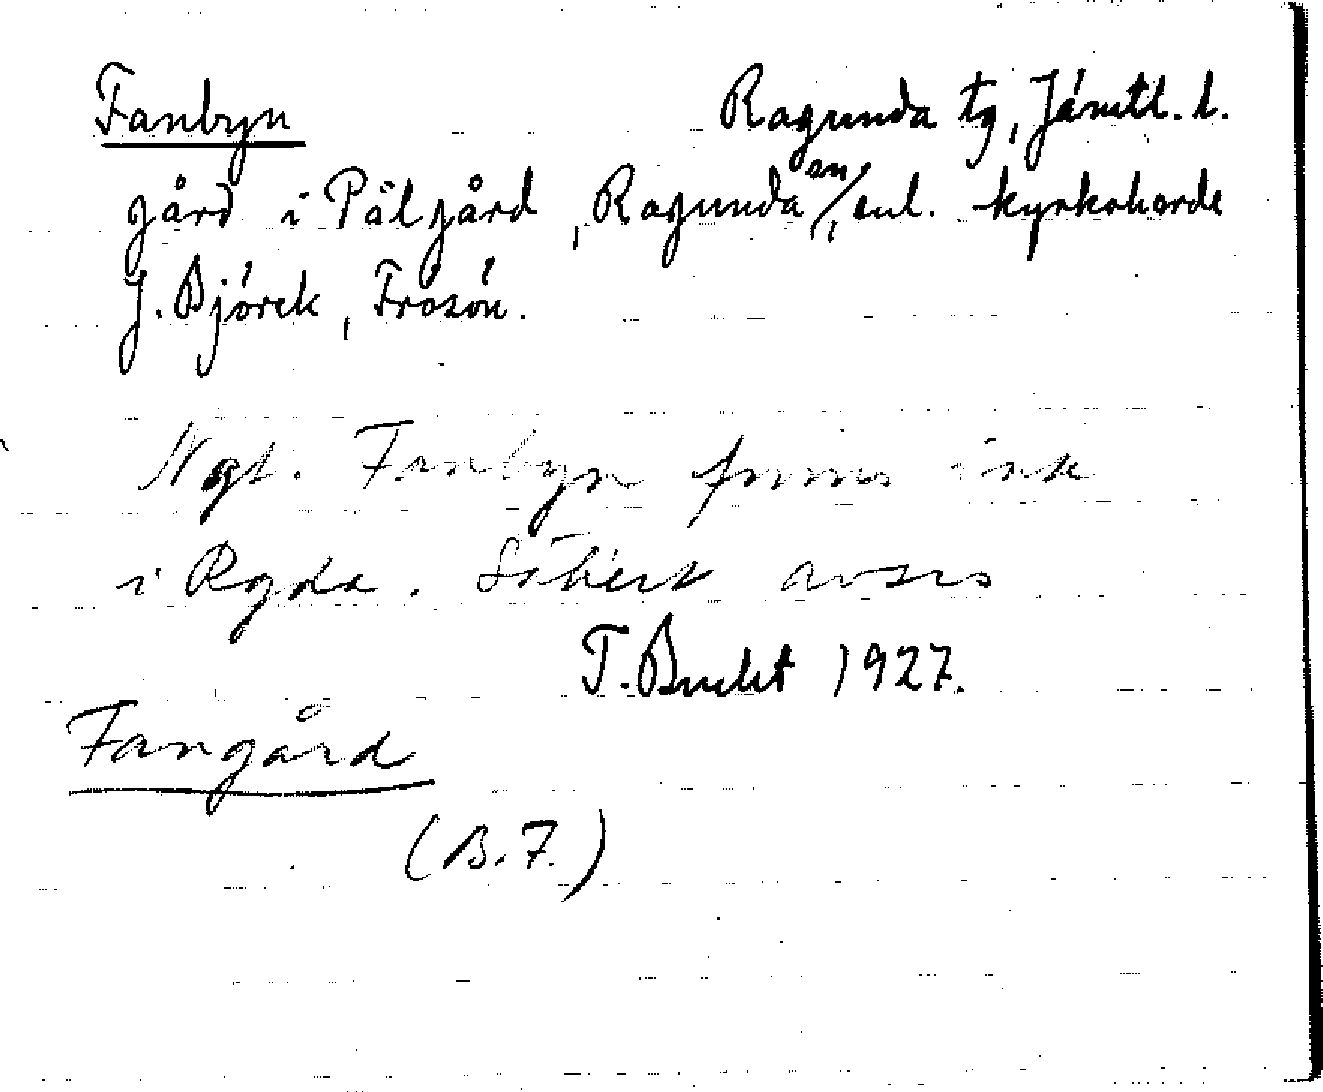 Fanbyn Ragunda tg, Jämtl. l.
gård i Pålgård, Ragunda sn/, enl. kyrkoherde
J. Björck, Frösön.
Ngt. Fanbyn finns inte
i Rgda. Säkert avses
T. Bucht 1927.
Fangård
(B.F.)